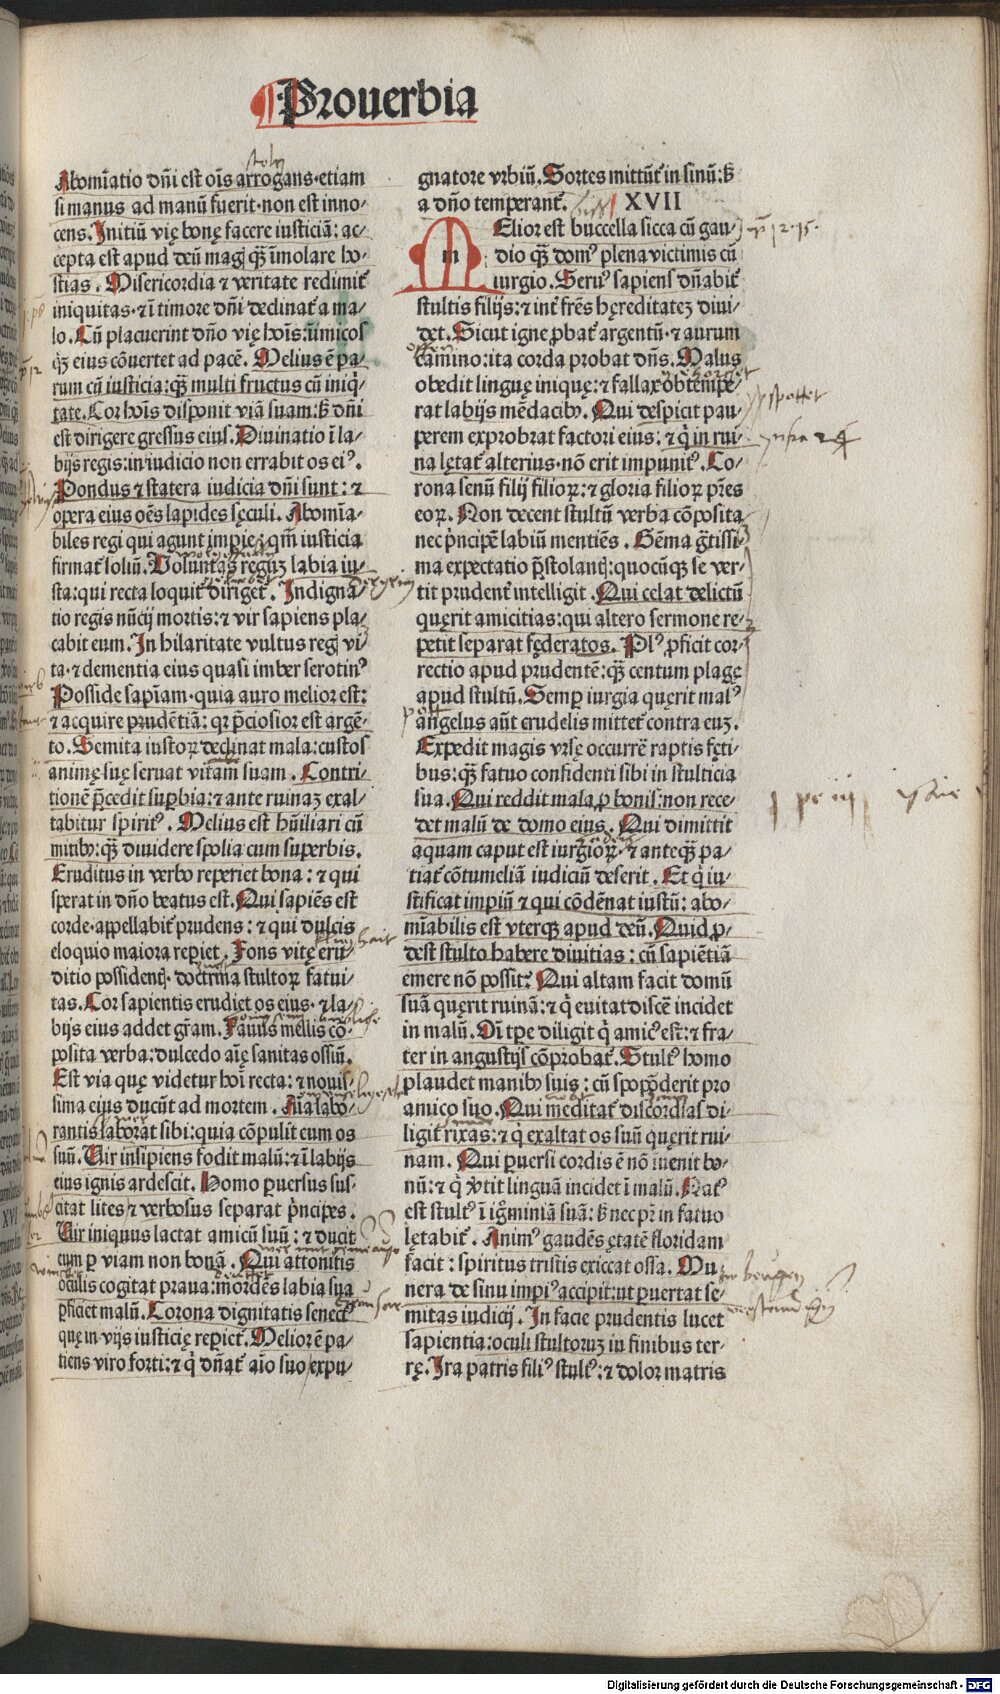 Prouerbia
Abomĩatio dñi est oĩs arrogans·etiam
si manus ad manũ fuerit·non est inno⸗
cens. Initiũ vię bonę facere iusticiã: ac⸗
cepta est apud deũ magꝭ q̃ȝ ĩmolare ho⸗
stias. Misericordia ⁊ veritate redimit᷑
iniquitas·⁊ ĩ timore dñi declinat᷑ a ma⸗
lo. Cũ placuerint dño vię hoĩs: inimicos
qȝ eius cõuertet ad pacẽ. Melius ẽ pa⸗
rum cũ iusticia: q̃ȝ multi fructus cũ iniq̃⸗
tate. Cor hoĩs disponit viã suam: ß dñi
est dirigere gressus eius. Diuinatio ĩ la⸗
bijs regis: in iudicio non errabit os eiꝰ.
Pondus ⁊ statera iudicia dñi sunt: ⁊
opera eius oẽs lapides sęculi. Abomĩa⸗
biles regi qui agunt impie: qm̃ iusticia
firmat᷑ soliũ. Voluntas regũ labia iu⸗
sta: qui recta loquit᷑ diriget᷑. Indigna⸗
tio regis nũcij mortis: ⁊ vir sapiens pla⸗
cabit eum. In hilaritate vultus regꝭ vi⸗
ta·⁊ clementia eius quasi imber serotinꝰ
Posside sapiam·quia auro melior est:
⁊ acquire prudẽtiã: qꝛ p̃ciosior est argẽ⸗
to. Semita iustoꝝ declinat mala: custos
animę suę seruat vitam suam. Contri⸗
tionẽ p̃cedit supbia: ⁊ ante ruinaȝ exal⸗
tabitur spiritꝰ. Melius est hũiliari cũ
mitibȝ: q̃ȝ diuidere spolia cum superbis.
Eruditus in verbo reperiet bona: ⁊ qui
sperat in dño beatus est. Qui sapiẽs est
corde·appellabit᷑ prudens: ⁊ qui dulcis
eloquio maiora repiet. Fons vitę eru⸗
ditio possidentꝭ. doctrina stultoꝝ fatui⸗
tas. Cor sapientis erudiet os eius·⁊ la⸗
bijs eius addet grãm. Fauus mellis cõ⸗
posita verba: dulcedo aĩę sanitas ossiũ.
Est via quę videtur hoĩ recta: ⁊ nouis⸗
sima eius ducũt ad mortem. Aĩa labo⸗
rantis laborat sibi: quia cõpulit eum os
suũ. Vir insipiens fodit malũ: ⁊ ĩ labijs
eius ignis ardescit. Homo puersus sus⸗
citat lites ⁊ verbosus separat p̃ncipes.
Vir iniquus lactat amicũ suũ: ⁊ ducit
eum p viam non bonã. Qui attonitis
oculis cogitat praua: mordẽs labia sua
pficiet malũ. Corona dignitatis senect᷑
quę in vijs iusticię repiet᷑. Melior ẽ pa⸗
tiens viro forti: ⁊ q̃ dñat᷑ aĩo suo expu⸗
gnatore vrbiũ. Sortes mittũt᷑ in sinũ: ß
a dño temperant᷑. XVII
MElior est buccella sicca cũ gau⸗
dio q̃ȝ domꝰ plena victimis cũ
iurgio. Seruꝰ sapiens dñabit᷑
stultis filijs: ⁊ int᷑ frẽs hęreditateȝ diui⸗
det. Sicut igne pbat᷑ argentũ·⁊ aurum
camino: ita corda probat dñs. Malus
obedit linguę iniquę: ⁊ fallax obtempe⸗
rat labijs mẽdacibȝ. Qui despicit pau⸗
perem exprobrat factori eius: ⁊ q̃ in rui⸗
na lętat᷑ alterius·nõ erit impunitꝰ. Co⸗
rona senũ filij filioꝝ: ⁊ gloria filioꝝ p̃res
eoꝝ. Non decent stultũ verba cõposita
nec p̃ncipẽ labiũ mentiẽs. Gẽma g̃tissi⸗
ma expectatio p̃stolantꝭ: quocũqȝ se ver⸗
tit prudent᷑ intelligit. Qui celat delictũ
quęrit amicitias: qui altero sermone re⸗
petit separat fęderatos. Plꝰ pficit cor⸗
rectio apud prudentẽ: q̃ȝ centum plagę
apud stultũ. Semp iurgia quęrit malꝰ
angelus aũt crudelis mittet᷑ contra euȝ.
Expedit magis vrsę occurrẽ raptis fęti⸗
bus: q̃ȝ fatuo confidenti sibi in stulticia
sua. Qui reddit mala p bonis: non rece⸗
det malũ de domo eius. Qui dimittit
aquam caput est iurgioꝝ: ⁊ anteq̃ȝ pa⸗
tiat᷑ cõtumeliã iudiciũ deserit. Et q̃ iu⸗
stificat impiũ ⁊ qui cõdẽnat iustũ: abo⸗
mĩabilis est vterqȝ apud deũ. Quid p⸗
dest stulto habere diuitias: cũ sapiẽtiã
emere nõ possit? Qui altam facit domũ
suã quęrit ruinã: ⁊ q̃ euitat discẽ incidet
in malũ. Oĩ tpe diligit q̃ amicꝰ est: ⁊ fra⸗
ter in angustijs cõprobat᷑. Stultꝰ homo
plaudet manibȝ suis: cũ spopõderit pro
amico suo. Qui meditat᷑ discordias di⸗
ligit rixas: ⁊ q̃ exaltat os suũ quęrit rui⸗
nam. Qui puersi cordis ẽ nõ inuenit bo⸗
nũ: ⁊ q̃ v̓tit linguã incidet ĩ malũ. Natꝰ
est stultꝰ ĩ ig̃miniã suã: ß nec pr̃ in fatuo
lętabit᷑. Animꝰ gaudẽs ętatẽ floridam
facit: spiritus tristis exiccat ossa. Mu⸗
nera de sinu impiꝰ accipit: ut puertat se⸗
mitas iudicij. In facie prudentis lucet
sapientia: oculi stultoruȝ in finibus ter⸗
rę. Ira patris filiꝰ stultꝰ: ⁊ dolor matris
Digitalisierung gefördert durch die Deutsche Forschungsgemeinschaft - DFG